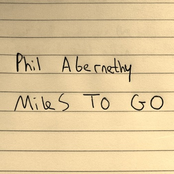 Phil Abernathy
Miles To GO